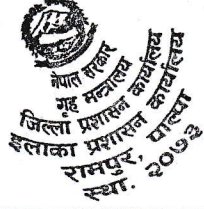 नेपाल सरकार
गृह मन्त्रालय
जिल्ला प्रशासन कार्यालय
इलाका प्रशासन कार्यालय
रामपुर, पाल्पा
स्था. २०७३